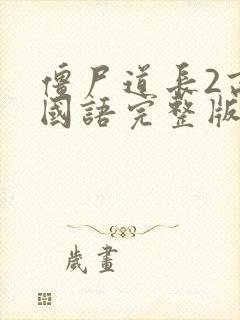 僵尸道长2高
國語完整版
歲畫